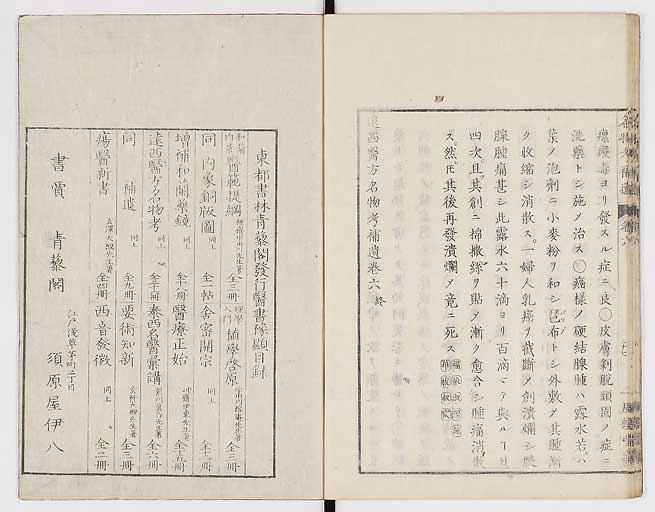 瘰癧毒ヨリ發スル症ニ良○皮膚剝脫頑固ノ症ニ
洗藥トシ施ノ治ス○癌樣ノ硬結腺腫ハ露水若ハ
葉ノ泡剤ニ小麥粉ヲ和シ琶布トシ外敷ノ其腫漸
ク收縮シ消散ス一婦人乳癌ヲ截斷ノ創潰爛シ腋
腺腫痛甚シ此露水六十滴ヨリ百滴マテ與ル丁日
四次且其創ニ棉撒絲ヲ貼ノ漸ク愈合シ腫痛消散
ス然氏其後再發潰爛ノ竟ニ死ス
遠西醫方名物考補遺卷六 終
東都書林青藜閣發行醫書豫顯目録
和蘭内景醫範提綱 全三冊
同 内象銅版圖 同上 全一帖
增補和蘭藥鏡 同上 全十八冊
遠西醫方名物考 同上 全三十六冊
同 補遺 同上 全九冊
瘍醫新書 全四冊
理學入門 植學啓原 宇田川榕菴先生著 全三冊
舍密開宗 同上
醫療正始 全十五冊
泰西名醫彙講 全六冊
要術知新 全三冊
西音發微 同上 全二冊
書賈 青藜閣
江戸淺草茅町二丁目
須原屋伊八